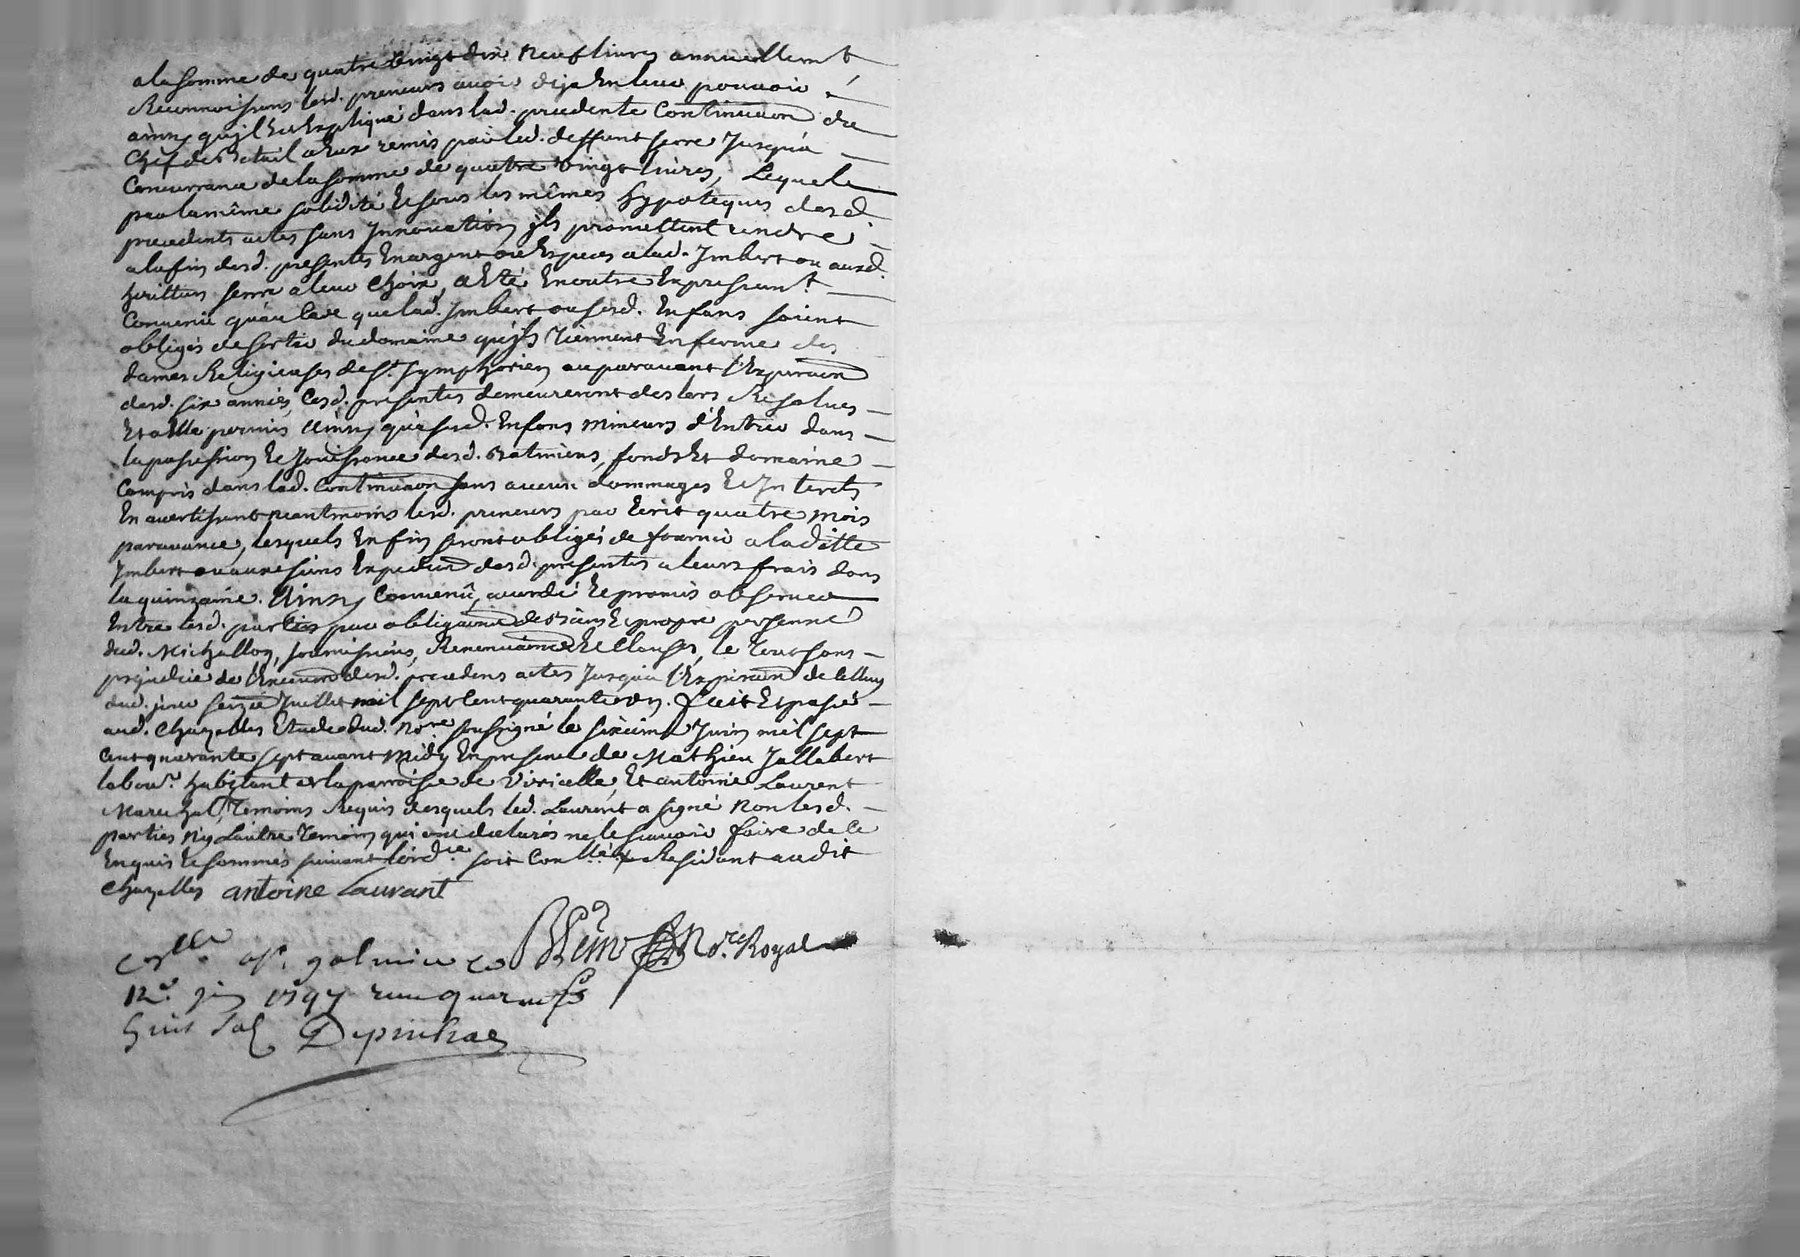 a la somme de quatre vingt dix neuf livres annuellemt
Reconnoissans lesd. preneurs avoir deja En leur pouvoir
ainsy qu'jl Est Expliqué dans lad. precedente Continuaon du
Chef de Betail a Eux remis par led. deffunt serre Jusqu'a
Concurrance de la somme de quatre vingt livres, Lequel
par la même solidité Et sous les mêmes hypoteques desd.
precedents actes sans Jnnovation jls promettent rendre
a la fin desd. presentes En argent ou Especes a lad. Jmbert ou auxd.
heritiers serre a leur Choix, a Eté En outre Expressemt
Convenu qu'au Cas que lad. Jmbert ou sesd. Enfans soient
obligés de sortir du domaine qu'jls Tiennent En ferme des
dames Religieuses de St. Symphorien auparavant l'Expiraon
desd. six années, Cesd. presentes demeureront des lors Resolues
Et a Elle permis ainsy qu'a sesd. Enfans mineurs d'Entrer dans
la possession Et Jouissance desd. Batimens, fonds Et domaine
Compris dans lad. Continuaon sans aucun dommages Et Jnterets
En avertissant neantmoins lesd. preneurs par Ecrit quatre mois
paravance, lesquels Enfin seront obligés de fournir a laditte
Jmbert ou aux siens Expedition desd. presentes a leurs frais dans
la quinzaine. Ainsy Convenû, accordé Et promis observer
Entre lesd. parties par obligaon de biens Et propre personne
dud. Michallon, soumissions, Renonciaons Et Clauses, le Tout sans
prejudice de l'Execuon desd. precedens actes Jusqu'a l'Expiraon de Celluy
dud. jour seizie Juillet mil sept Cent quarante un. fait Et passé
aud. Chazelles Etude dud. nore soussigné le sixieme Juin mil sept
Cent quarante sept avant midy En presence de Mathieu Jallabert
labour. habitant en la parroisse de Viricelle, Et antoine Laurent
Marechal, Temoins Requis desquels led. Laurent a signé non lesd.
parties ny L'autre Temoin qui ont declarés ne le sçavoir faire de Ce
Enquis Et sommés suivant l'ordce soit Conllé Residant audit
Chazelles antoine Laurant
Conllé a St. galmier Ce
Nore. Royal
12e. juin 1747 reçu quarante
huit sols Depinhac